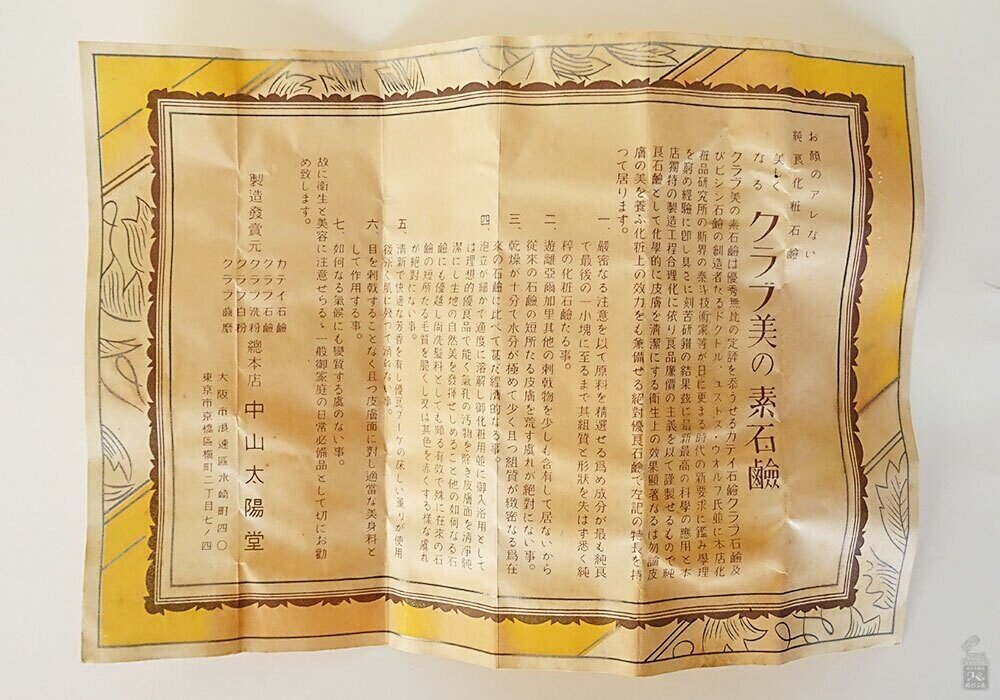 お顔のアレない
純良化粧石鹼
美しくなる
クラブ美の素石鹼
クラブ美の素石鹼は優秀無比の定評を忝うせるカテイ石鹼クラブ石鹼及
びビシン石鹼の創造者たるドクトル、ユストス・ウオルフ氏並に本店化
粧品研究所の斯界の泰斗技術家等が日に更まる時代の新要求に鑑み學理
を窮め經驗に卽し具さに刻苦硏鑽の結果玆に最新最高の科學の應用と本
店獨特の製造工程合理化に依り良品廉價の主義を以て謹製せるもので純
良石鹼として化學的に皮膚を淸潔にする衞生上の效果顯著なるは勿論皮
膚の美を養ふ化粧上の效力をも兼備せる絕對優良石鹼で左記の特長を持
つて居ります。
一、嚴密なる注意を以て原料を精選せる爲め成分が最も純良
で最後の一小塊に至るまで其組質と形狀を失はず悉く純
粹の化粧石鹼たる事。
二、遊離亞爾加里其他の刺戟物を少しも含有して居ないから
從來の石鹼の短所たる皮膚を荒す虞れが絕對にない事。
三、乾燥が十分て水分が極めて少く且つ組質が緻密なる爲在
來の石鹼に比べて甚だ經濟的なる事。
四、泡立が細かで適度に溶解し御化粧用並に御入浴用として
は理想的優良品で能く氣孔の汚物を除き皮膚面を淸淨純
潔にし生地の自然美を發揮せしめること他の如何なる石
鹼にも優越し尙洗髮料としても頗る有效で殊に在來の石
鹼の短所たる毛質を脆くし又は其色を赤くする樣な虞れ
が絕對にない事。
五、淸新で快適な芳香を有し優雅ブーケの床しい薰りが使用
後永く肌に殘つて消えない事。
六、目を刺戟することなく且つ皮膚面に對し適當な美身料と
して作用する事。
七、如何なる氣候にも變質する虞のない事。
故に衞生と美容に注意せらるゝ一般御家庭の日常必備品として切にお勸
め致します。
製造發賣元
カテイ石鹼
クラブ石鹼
クラブ洗粉
クラブ白粉
クラブ齒磨
總本店 中山太陽堂
大阪市浪速區水崎町四〇
東京市京橋區橫町二丁目七ノ四